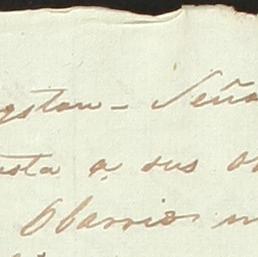 gston - Seño
sta a sus o
Obarrio